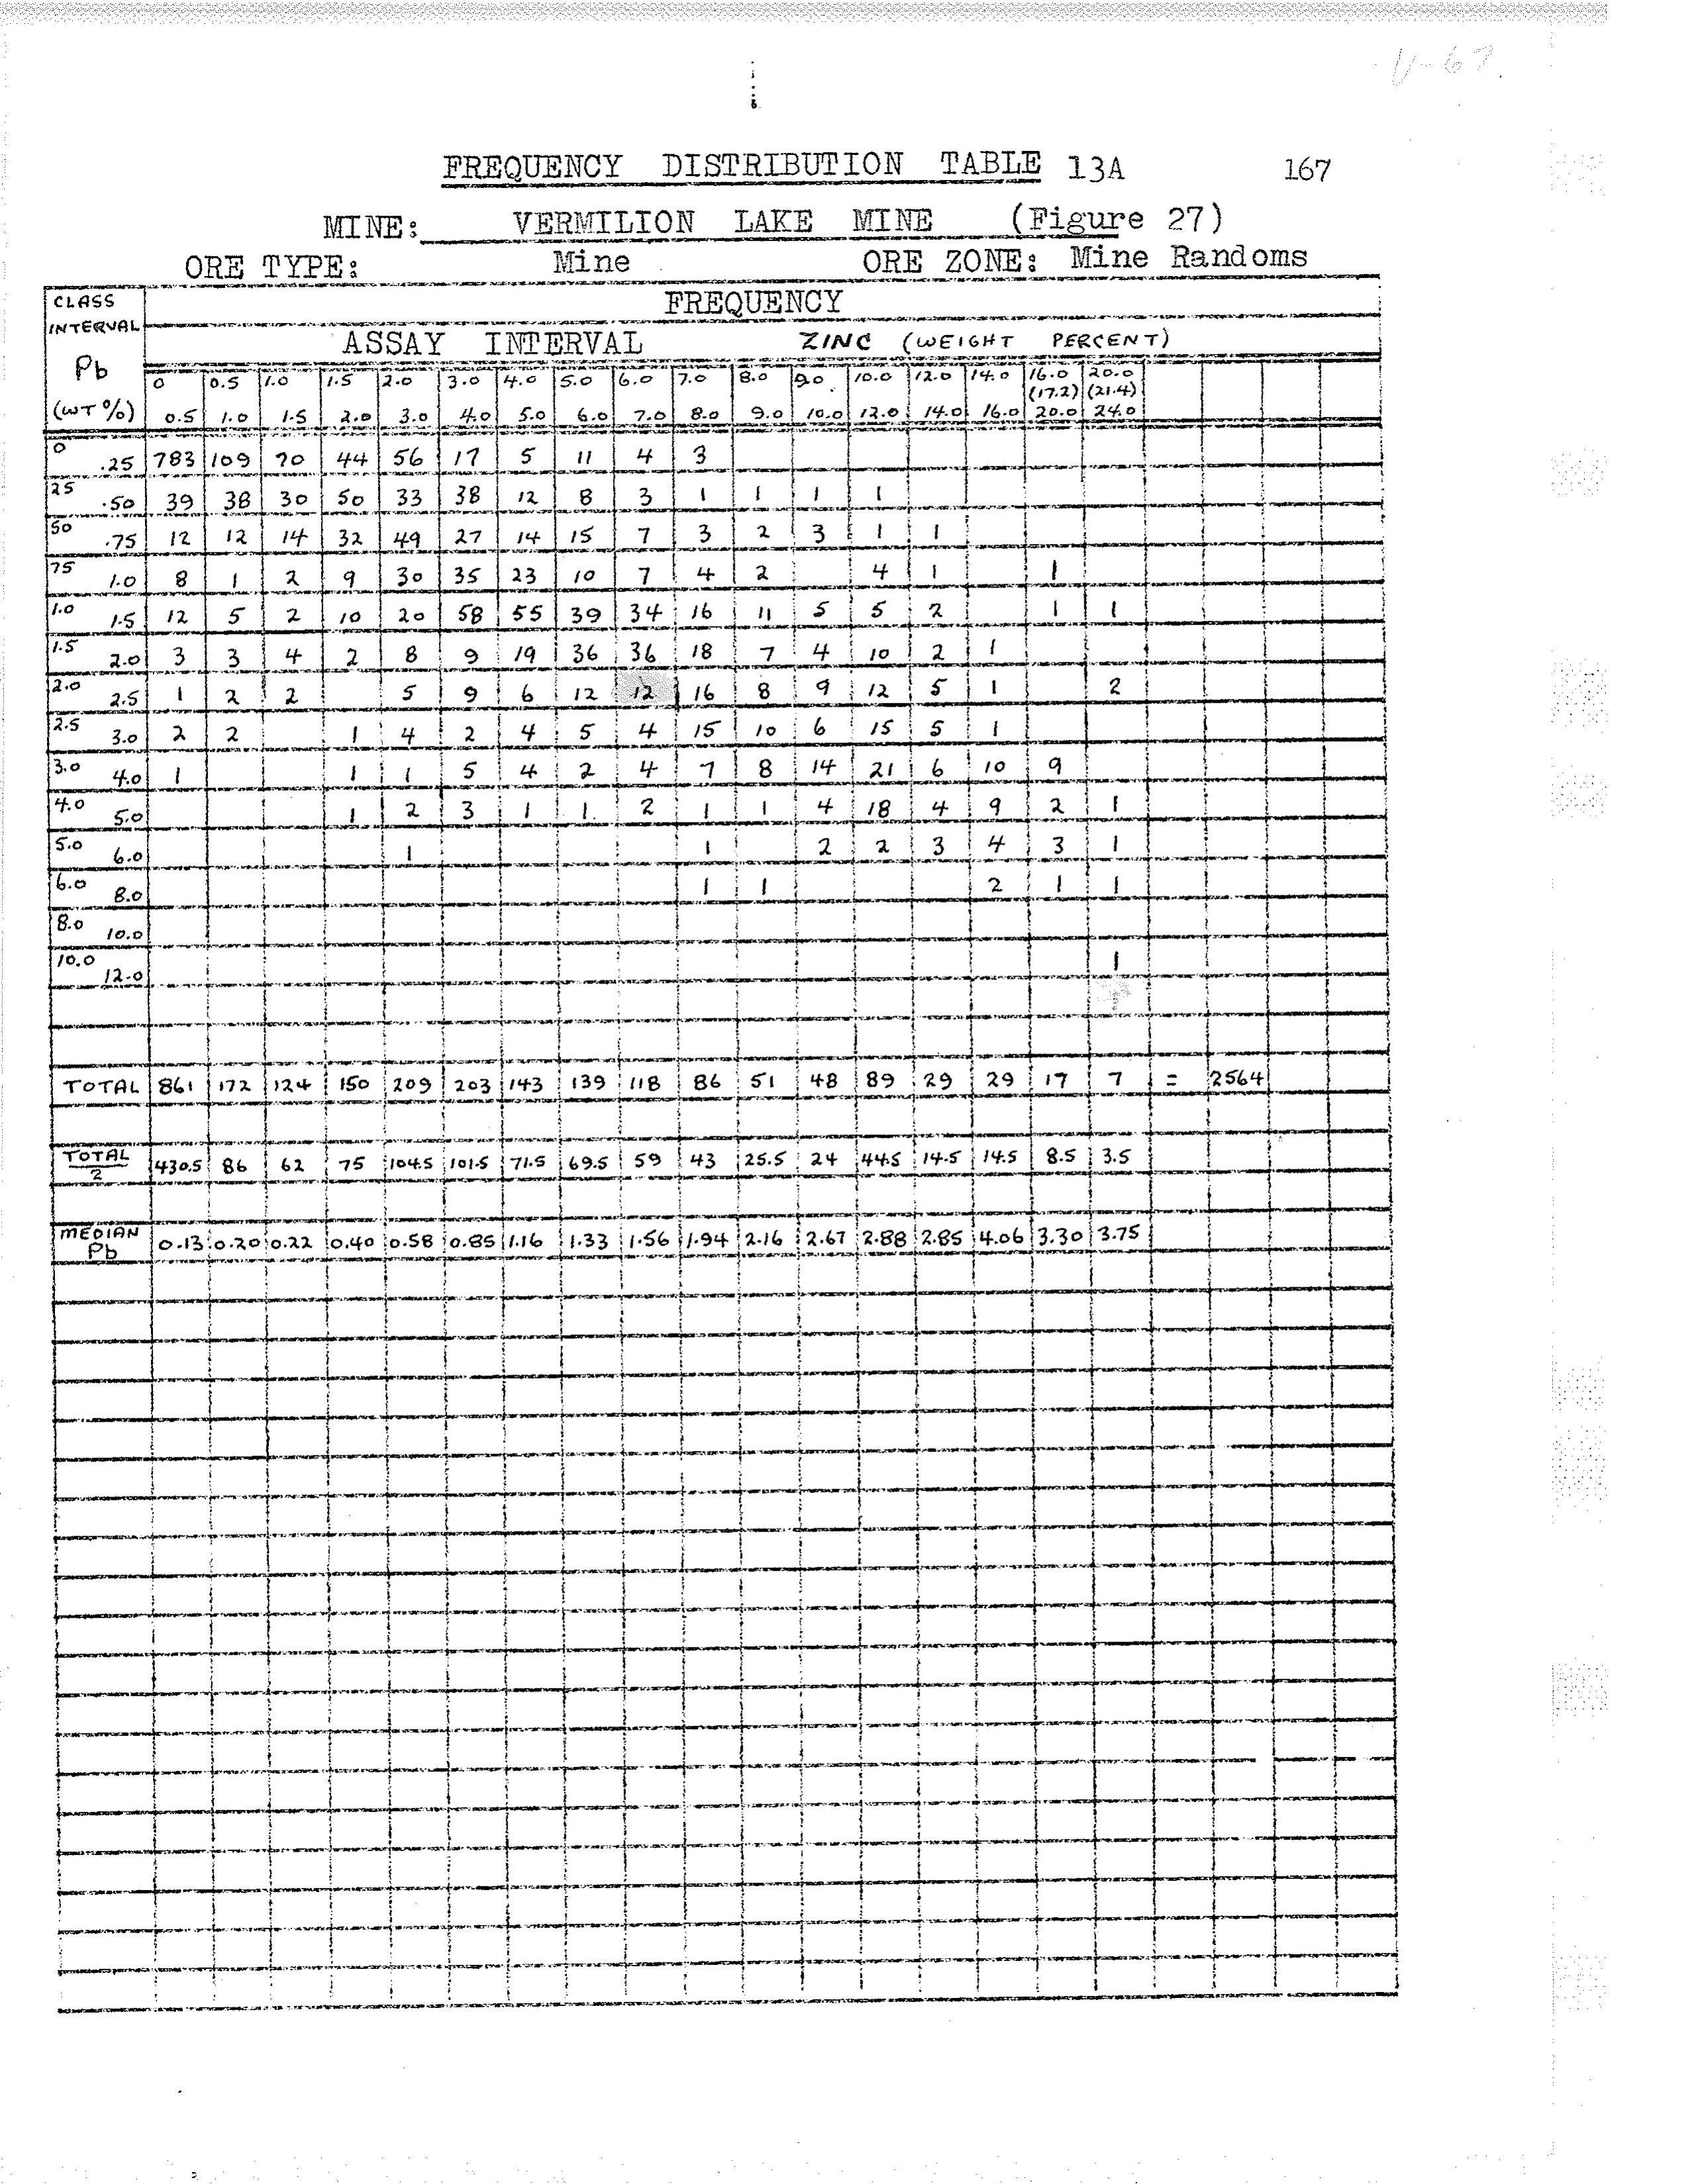 V-67
FREQUENCY DISTRIBUTION TABLE 13A 167
MINE: VERMILION LAKE MINE (Figure 27)
ORE TYPE: Mine ORE ZONE: Mine Randoms
CLASS INTERVAL Pb (WT %)
FREQUENCY
ASSAY INTERVAL ZINC (WEIGHT PERCENT)
0 0.5 1.0 1.5 2.0 3.0 4.0 5.0 6.0 7.0 8.0 9.0 10.0 12.0 14.0 16.0 20.0
(17.2) (21.4)
0.5 1.0 1.5 2.0 3.0 4.0 5.0 6.0 7.0 8.0 9.0 10.0 12.0 14.0 16.0 20.0 24.0
0 .25 783 109 70 44 56 17 5 11 4 3
25 .50 39 38 30 50 33 38 12 8 3 1 1 1 1
50 .75 12 12 14 32 49 27 14 15 7 3 2 3 1 1
75 1.0 8 1 2 9 30 35 23 10 7 4 2 4 1 1
1.0 1.5 12 5 2 10 20 58 55 39 34 16 11 5 5 2 1 1
1.5 2.0 3 3 4 2 8 9 19 36 36 18 7 4 10 2 1
2.0 2.5 1 2 2 5 9 6 12 12 16 8 9 12 5 1 2
2.5 3.0 2 2 1 4 2 4 5 4 15 10 6 15 5 1
3.0 4.0 1 1 1 5 4 2 4 7 8 14 21 6 10 9
4.0 5.0 1 2 3 1 1 2 1 1 4 18 4 9 2 1
5.0 6.0 1 1 2 2 3 4 3 1
6.0 8.0 1 1 2 1 1
8.0 10.0
10.0 12.0 1
TOTAL 861 172 124 150 209 203 143 139 118 86 51 48 89 29 29 17 7 = 2564
TOTAL 2 430.5 86 62 75 104.5 101.5 71.5 69.5 59 43 25.5 24 44.5 14.5 14.5 8.5 3.5
MEDIAN Pb 0.13 0.20 0.22 0.40 0.58 0.85 1.16 1.33 1.56 1.94 2.16 2.67 2.88 2.85 4.06 3.30 3.75